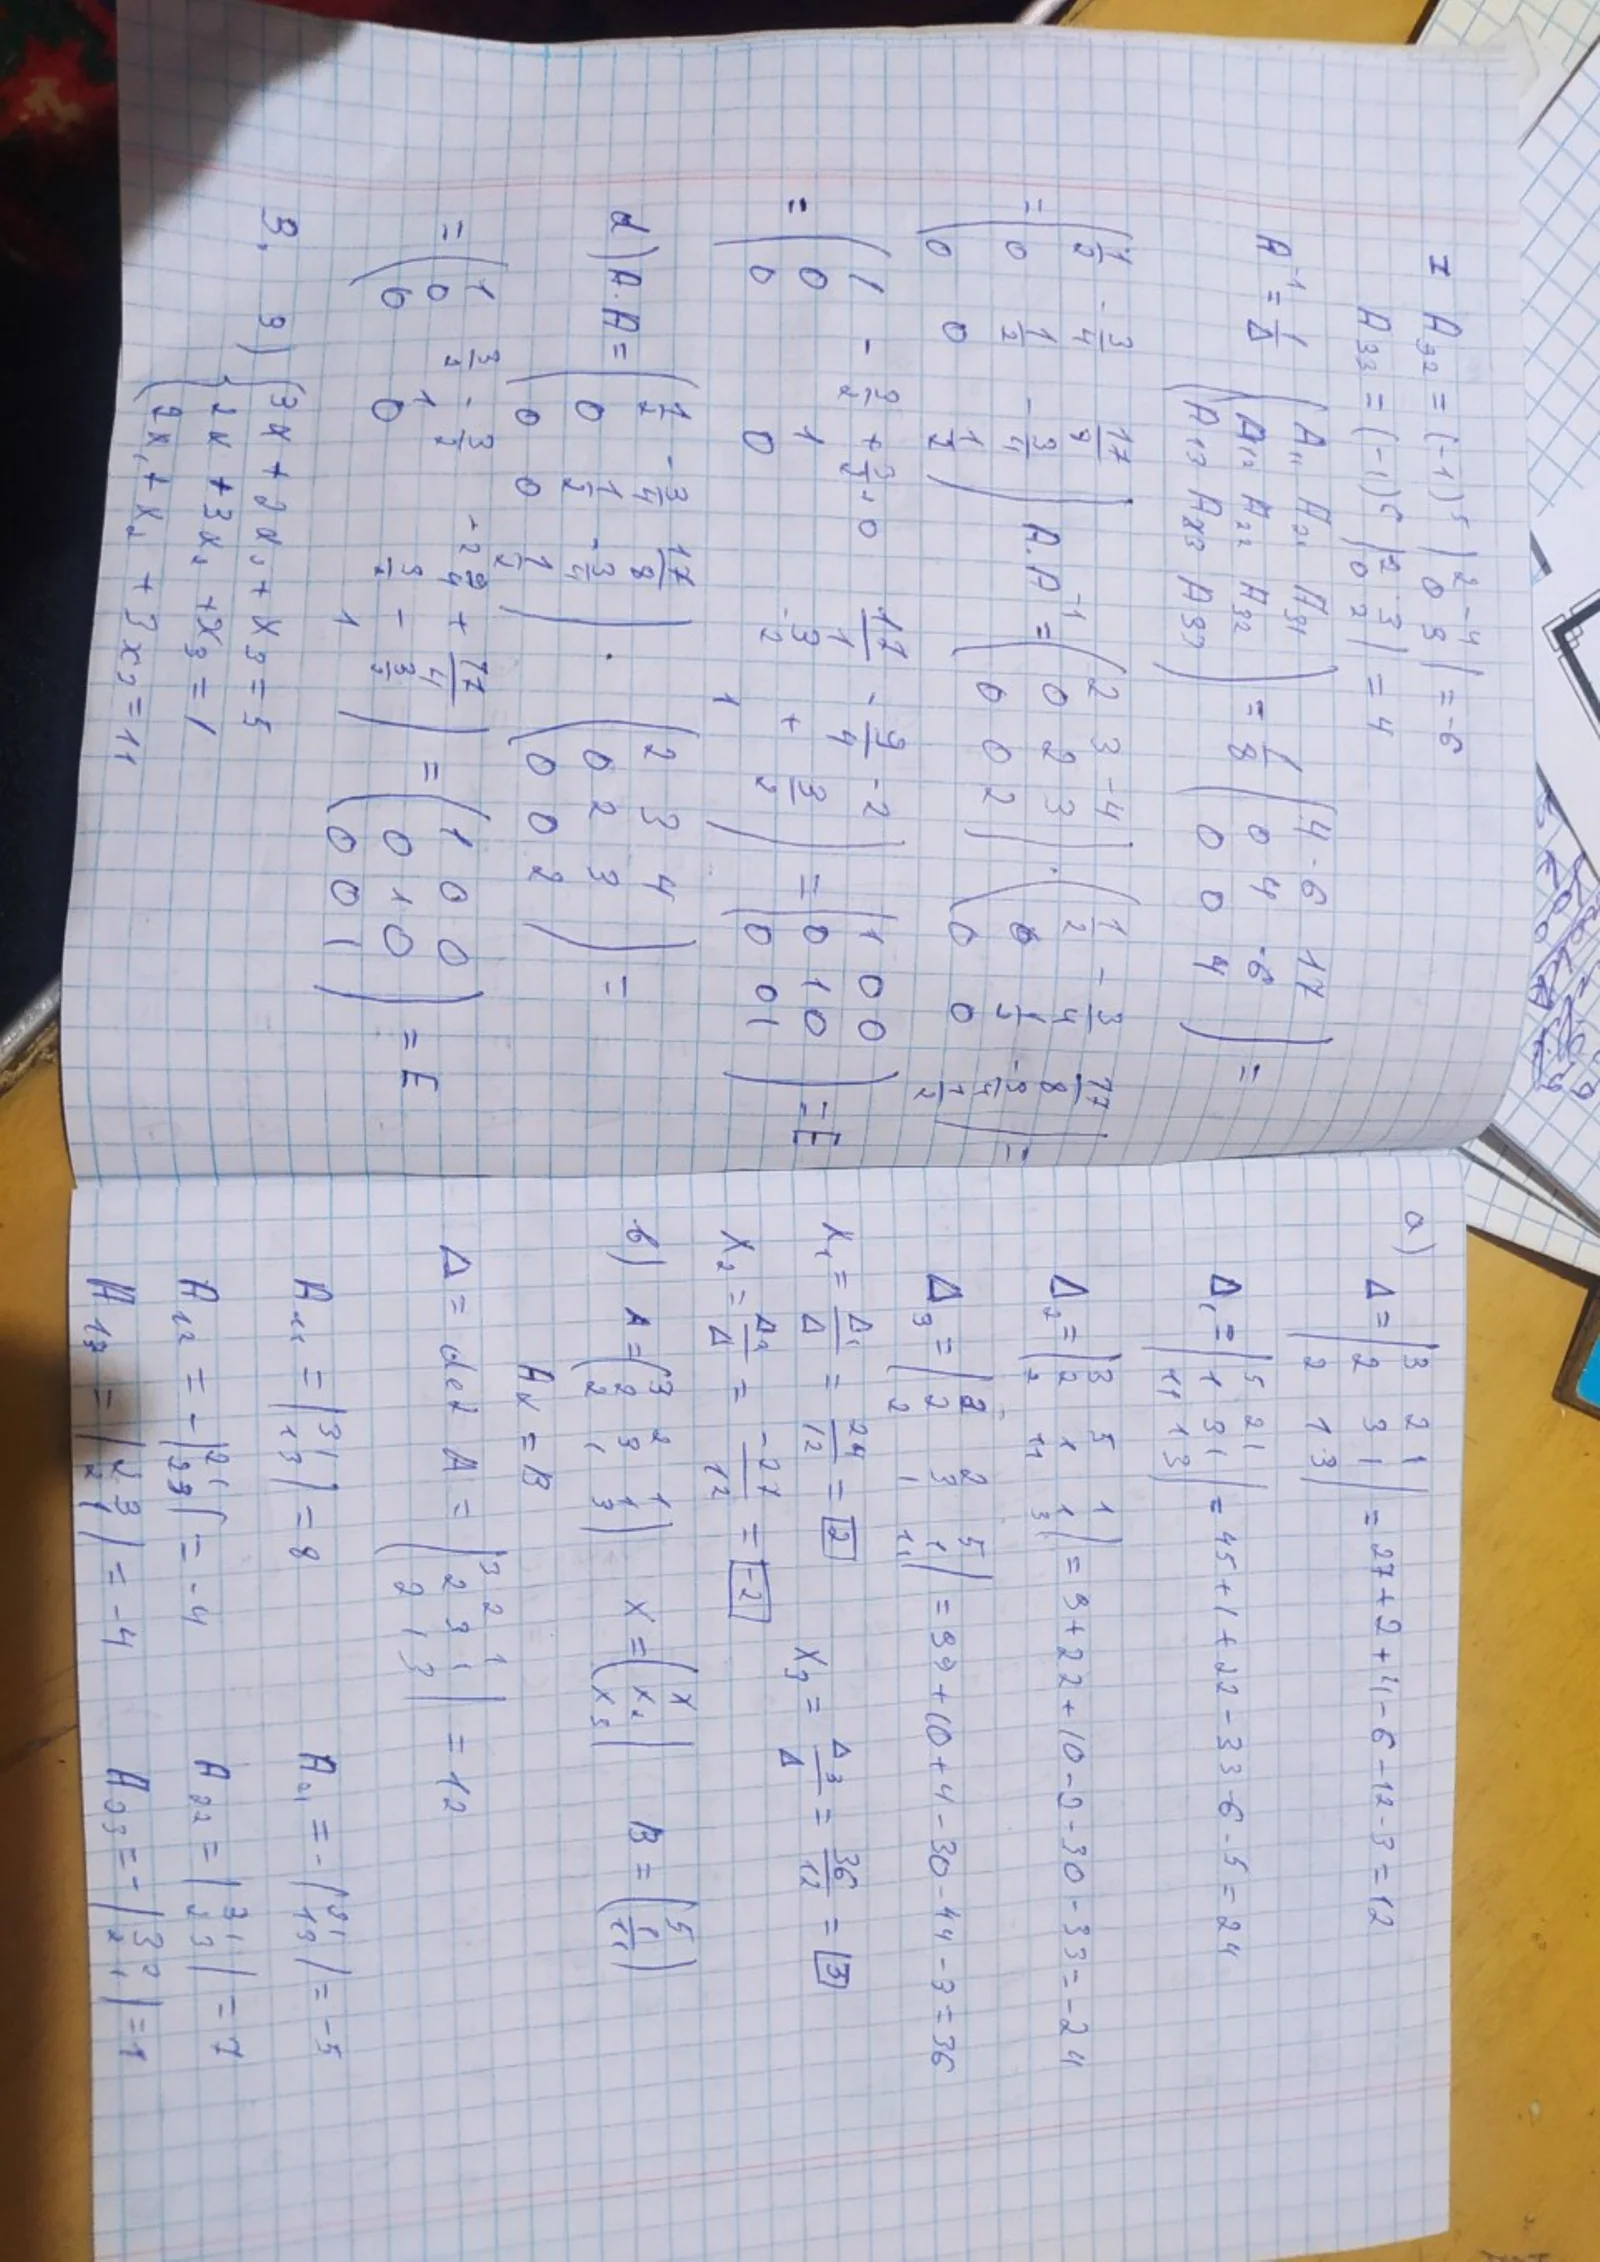 = A₃₂ = (-1)⁵ |2 -4; 0 3| = -6
A₃₃ = (-1)⁶ |2 3; 0 2| = 4
A⁻¹ = 1/Δ (A₁₁ A₂₁ A₃₁; A₁₂ A₂₂ A₃₂; A₁₃ A₂₃ A₃₃) = 1/8 (4 -6 17; 0 4 -6; 0 0 4) =
= (1/2 -3/4 17/8; 0 1/2 -3/4; 0 0 1/2) A·A⁻¹ = (2 3 -4; 0 2 3; 0 0 2) · (1/2 -3/4 17/8; 0 1/2 -3/4; 0 0 1/2) =
= (1 -3/2 + 3/2 - 0 17/4 - 9/4 - 2; 0 1 -3/2 + 3/2; 0 0 1) = (1 0 0; 0 1 0; 0 0 1) = E
d) A·A = (1/2 -3/4 17/8; 0 1/2 -3/4; 0 0 1/2) · (2 3 4; 0 2 3; 0 0 2) =
= (1 3/2 - 3/2 -2 9/4 + 17/4; 0 1 3/2 - 3/2; 0 0 1) = (1 0 0; 0 1 0; 0 0 1) = E
3. 3) {3x + 2x₂ + x₃ = 5
2x + 3x₂ + x₃ = 1
2x₁ + x₂ + 3x₃ = 11
a) Δ = |3 2 1; 2 3 1; 2 1 3| = 27 + 2 + 4 - 6 - 12 - 3 = 12
Δ₁ = |5 2 1; 1 3 1; 11 1 3| = 45 + 1 + 22 - 33 - 6 - 5 = 24
Δ₂ = |3 5 1; 2 1 1; 2 11 3| = 9 + 22 + 10 - 2 - 30 - 33 = -24
Δ₃ = |3 2 5; 2 3 1; 2 1 11| = 99 + 10 + 4 - 30 - 44 - 3 = 36
x₁ = Δ₁/Δ = 24/12 = 2 x₃ = Δ₃/Δ = 36/12 = 3
x₂ = Δ₂/Δ = -24/12 = -2
в) A = (3 2 1; 2 3 1; 2 1 3) X = (x; x₂; x₃) B = (5; 1; 11)
Ax = B
Δ = det A = |3 2 1; 2 3 1; 2 1 3| = 12
A₁₁ = |3 1; 1 3| = 8 A₂₁ = -|2 1; 1 3| = -5
A₁₂ = -|2 1; 2 3| = -4 A₂₂ = |3 1; 2 3| = 7
A₁₃ = |2 3; 2 1| = -4 A₂₃ = -|3 2; 2 1| = 1